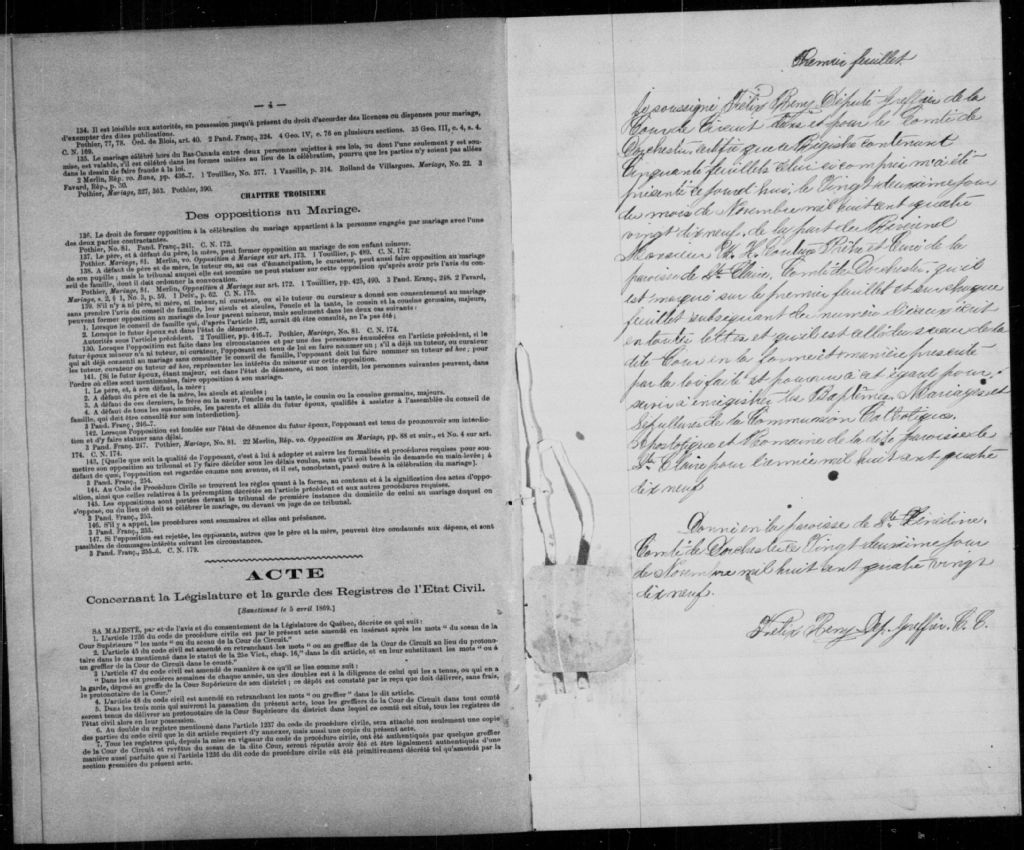 — 4 —
134. Il est loisible aux autorités, en possession jusqu'à présent du droit d'accorder des licences ou dispenses pour mariage,
d'exempter des dites publications.
Pothier, 77, 78. Ord. de Blois, art. 40. 2 Pand. Franç., 324. 4 Geo. IV, c. 76 en plusieurs sections. 35 Geo. III, c. 4, s. 4.
C. N. 169.
135. Le mariage célébré hors du Bas-Canada entre deux personnes sujettes à ses lois, ou dont l'une seulement y est sou-
mise, est valable, s'il est célébré dans les formes usitées au lieu de la célébration, pourvu que les parties n'y soient pas allées
dans le dessin de faire fraude à la loi.
2 Merlin, Rép. vo. Bans, pp. 436-7. 1 Touillier, No. 577. 1 Vazeille, p. 314. Rolland de Villargues, Mariage, No. 22. 3
Favard, Rép., p. 50.
Pothier, Mariage, 327, 363. Pothier, 390.
CHAPITRE TROISIEME
Des oppositions au Mariage.
136. Le droit de former opposition à la célébration du mariage appartient à la personne engagée par mariage avec l'une
des deux parties contractantes.
Pothier, No. 81. Pand. Franç., 241. C. N. 172.
137. Le père, et à défaut du père, la mère, peut former opposition au mariage de son enfant mineur.
Pothier, Mariage, 81. Merlin, vo. Opposition à Mariage sur art. 173. 1 Touillier, p. 489. C. N. 173.
138. A défaut de père et de mère, le tuteur, ou, au cas d'émancipation, le curateur, peut aussi faire opposition au mariage
de son pupille ; mais le tribunal auquel elle est soumise ne peut statuer sur cette opposition qu'après avoir pris l'avis du con-
seil de famille, dont il doit ordonner la convocation.
Pothier, Mariage, 81. Merlin, Opposition à Mariage sur art. 172. 1 Touillier, pp. 425, 490. 3 Pand. Franç., 248. 2 Favard,
Mariage, s. 2, § 1, No. 3, p. 59. 1 Delv., p. 62. C. N. 175.
139. S'il n'y a ni père, ni mère, ni tuteur, ni curateur, ou si le tuteur ou curateur a donné son consentement au mariage
sans prendre l'avis du conseil de famille, les aïeuls et aïeules, l'oncle et la tante, le cousin et la cousine germains, majeurs,
peuvent former opposition au mariage de leur parent mineur, mais seulement dans les deux cas suivants :
1. Lorsque le conseil de famille qui, d'après l'article 122, aurait dû être consulté, ne l'a pas été ;
2. Lorsque le futur époux est dans l'état de démence.
Autorités sous l'article précédent. 2 Touillier, pp. 446-7. Pothier, Mariage, No. 81. C. N. 174.
140. Lorsque l'opposition est faite dans les circonstances et par une des personnes énumérées en l'article précédent, si le
futur époux mineur n'a ni tuteur, ni curateur, l'opposant est tenu de lui en faire nommer un ; s'il a déjà un tuteur, ou curateur
qui ait déjà consenti au mariage sans consulter le conseil de famille, l'opposant doit lui faire nommer un tuteur ad hoc ; pour
les tuteur, curateur ou tuteur ad hoc, représenter les intérêts du mineur sur cette opposition.
141. [Si le futur époux, étant majeur, est dans l'état de démence, et non interdit, les personnes suivantes peuvent, dans
l'ordre où elles sont mentionnées, faire opposition à son mariage.
1. Le père, et, à son défaut, la mère ;
2. A défaut du père et de la mère, les aïeuls et aïeules ;
3. A défaut de ces derniers, le frère ou la sœur, l'oncle ou la tante, le cousin ou la cousine germains, majeurs.
4. A défaut de tous les sus-nommés, les parents et alliés du futur époux, qualifiés à assister à l'assemblée du conseil de
famille, qui doit être consulté sur son interdiction].
3 Pand. Franç., 246-7.
142. Lorsque l'opposition est fondée sur l'état de démence du futur époux, l'opposant est tenu de promouvoir son interdic-
tion et d'y faire statuer sans délai.
3 Pand. Franç. 247. Pothier, Mariage, No. 81. 22 Merlin, Rép. vo. Opposition au Mariage, pp. 88 et suiv., et No. 4 sur art.
174. C. N. 174.
143. [Quelle que soit la qualité de l'opposant, c'est à lui à adopter et suivre les formalités et procédures requises pour sou-
mettre son opposition au tribunal et l'y faire décider sous les délais voulus, sans qu'il soit besoin de demande en main-levée ; à
défaut de quoi, l'opposition est regardée comme non avenue, et il est, nonobstant, passé outre à la célébration du mariage].
3 Pand. Franç., 254.
144. Au Code de Procédure Civile se trouvent les règles quant à la forme, au contenu et à la signification des actes d'oppo-
sition, ainsi que celles relatives à la péremption décrétée en l'article précédent et aux autres procédures requises.
145. Les oppositions sont portées devant le tribunal de première instance du domicile de celui au mariage duquel on
s'oppose, ou du lieu où doit se célébrer le mariage, ou devant un juge de ce tribunal.
3 Pand. Franç., 253.
146. S'il y a appel, les procédures sont sommaires et elles ont préséance.
3 Pand. Franç., 253.
147. Si l'opposition est rejetée, les opposants, autres que le père et la mère, peuvent être condamnés aux dépens, et sont
passibles de dommages-intérêts suivant les circonstances.
3 Pand. Franç., 255-6. C. N. 179.
ACTE
Concernant la Législature et la garde des Registres de l'Etat Civil.
[Sanctionné le 5 avril 1869.]
SA MAJESTÉ, par et de l'avis et du consentement de la Législature de Québec, décrète ce qui suit :
1. L'article 1236 du code de procédure civile est par le présent acte amendé en insérant après les mots " du sceau de la
Cour Supérieure " les mots " ou du sceau de la Cour de Circuit."
2. L'article 45 du code civil est amendé en retranchant les mots " ou au greffier de la Cour de Circuit au lieu du protono-
taire dans le cas mentionné dans le statut de la 25e Vict., chap. 16," dans le dit article, et en leur substituant les mots " ou à
un greffier de la Cour de Circuit dans le comté."
3 L'article 47 du code civil est amendé de manière à ce qu'il se lise comme suit :
" Dans les six premières semaines de chaque année, un des doubles est à la diligence de celui qui les a tenus, ou qui en a
la garde, déposé au greffe de la Cour Supérieure de son district ; ce dépôt est constaté par le reçu que doit délivrer, sans frais,
le protonotaire de la Cour."
4. L'article 48 du code civil est amendé en retranchant les mots " ou greffier " dans le dit article.
5. Dans les trois mois qui suivront la passation du présent acte, tous les greffiers de la Cour de Circuit dans tout comté
seront tenus de délivrer au protonotaire de la Cour Supérieure du district dans lequel ce comté est situé, tous les registres de
l'état civil alors en leur possession.
6. Au double du registre mentionné dans l'article 1237 du code de procédure civile, sera attaché non seulement une copie
des parties du code civil que le dit article requiert d'y annexer, mais aussi une copie du présent acte.
7. Tous les registres qui, depuis la mise en vigueur du code de procédure civile, ont été authentiqués par quelque greffier
de la Cour de Circuit et revêtus du sceau de la dite Cour, seront réputés avoir été et être légalement authentiqués d'une
manière aussi parfaite que si l'article 1236 du dit code de procédure civile eût été primitivement décrété tel qu'amendé par la
section première du présent acte.
Premier feuillet.
Je soussigné, Félix Rény, Député Greffier de la
Cour de Circuit dans et pour le Comté de
Dorchester, certifie que ce Registre contenant
Cinquante feuillets celui ci compris m'a été
présenté ce jourd'hui, le Vingt deuxième jour
du mois de Novembre mil huit cent quatre
vingt dix neuf, de la part du Révérend
Monsieur H. Ptre et Curé de la
paroisse de Ste Claire, Comté de Dorchester, qu'il
est marqué sur le premier feuillet et sur chaque
feuillet subséquent du numéro d'icelui écrit
en toutes lettres et qu'il est du sceau de la
dite Cour en la forme et manière prescrite
par la loi faite et pourvue à cet égard pour
servir à enregistrer les Baptêmes, Mariages et
Sépultures de la Communion Catholique,
Apostolique et Romaine de la dite paroisse de
Ste Claire pour l'année mil huit cent quatre
dix neuf
Donné en la paroisse de Ste Hénédine,
Comté de Dorchester le Vingt deuxième jour
de Novembre mil huit cent quatre vingt
dix neuf.
Félix Rény Dep. Greffier. C. C.